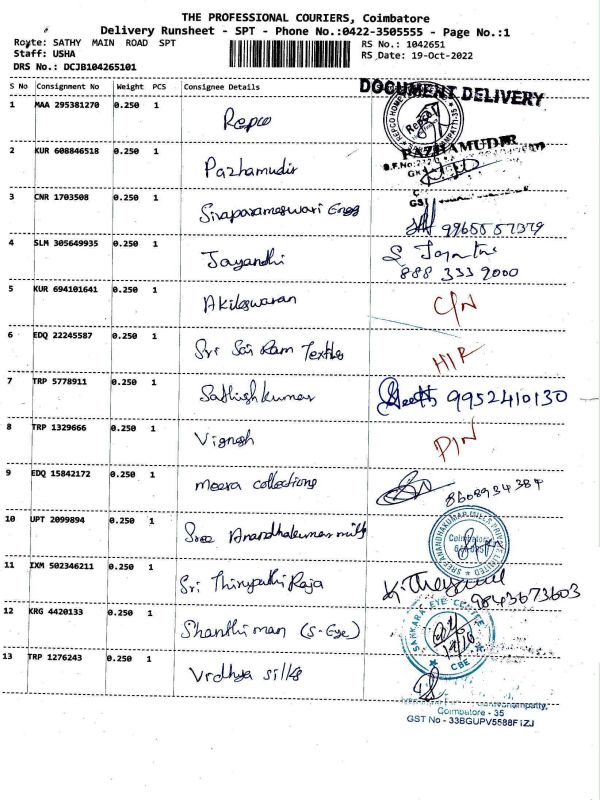 THE PROFESSIONAL COURIERS, Coimbatore
Delivery Runsheet - SPT - Phone No.:0422-3505555 - Page No.:1
Route: SATHY MAIN ROAD SPT
RS No.: 1042651
Staff: USHA
RS Date: 19-Oct-2022
DRS No.: DCJB104265101
S No Consignment No Weight PCS Consignee Details
DOCUMENT DELIVERY
1 MAA 295381270 0.250 1 Repco
2 KUR 608846518 0.250 1 Pazhamudir PAZHAMUDIR
3 CNR 1703508 0.250 1 Sivaparameswari Engg
4 SLM 305649935 0.250 1 Jayandhi
888 333 9000
5 KUR 694101641 0.250 1 Akileswaran C/N
6 EDQ 22245587 0.250 1 Sri Sai Ram Textiles
7 TRP 5778911 0.250 1 Sathishkumar 9952410130
8 TRP 1329666 0.250 1 Vignesh
9 EDQ 15842172 0.250 1 meera collections 8608934384
10 UPT 2099894 0.250 1 Sree Anandhakumar mills
Coimbatore
11 IXM 502346211 0.250 1 Sri Thirupathi Raja
9843673603
12 KRG 4420133 0.250 1 Shanthi man (S-Eye)
SANKARA EYE CENTRE
CBE
13 TRP 1276243 0.250 1 Vidhya silks
Coimbatore - 35
GST No - 33BGUPV5588F1ZJ